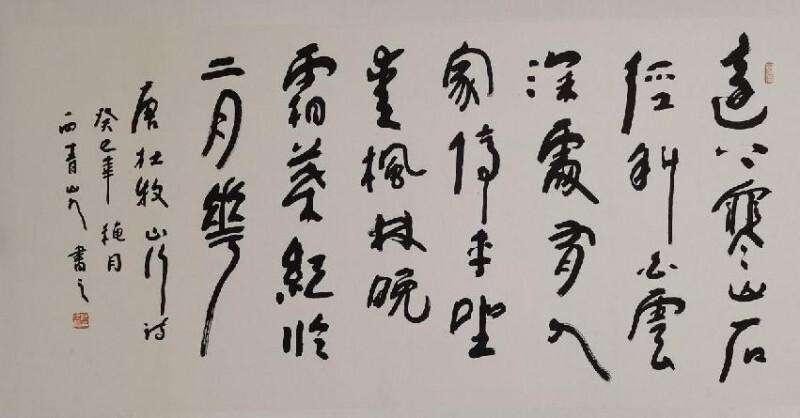 遠上寒山石
徑斜白雲
深處有人
家停車坐
愛楓林晚
霜葉紅於
二月華
唐杜牧山行詩
癸巳年穐月
西青山人書之